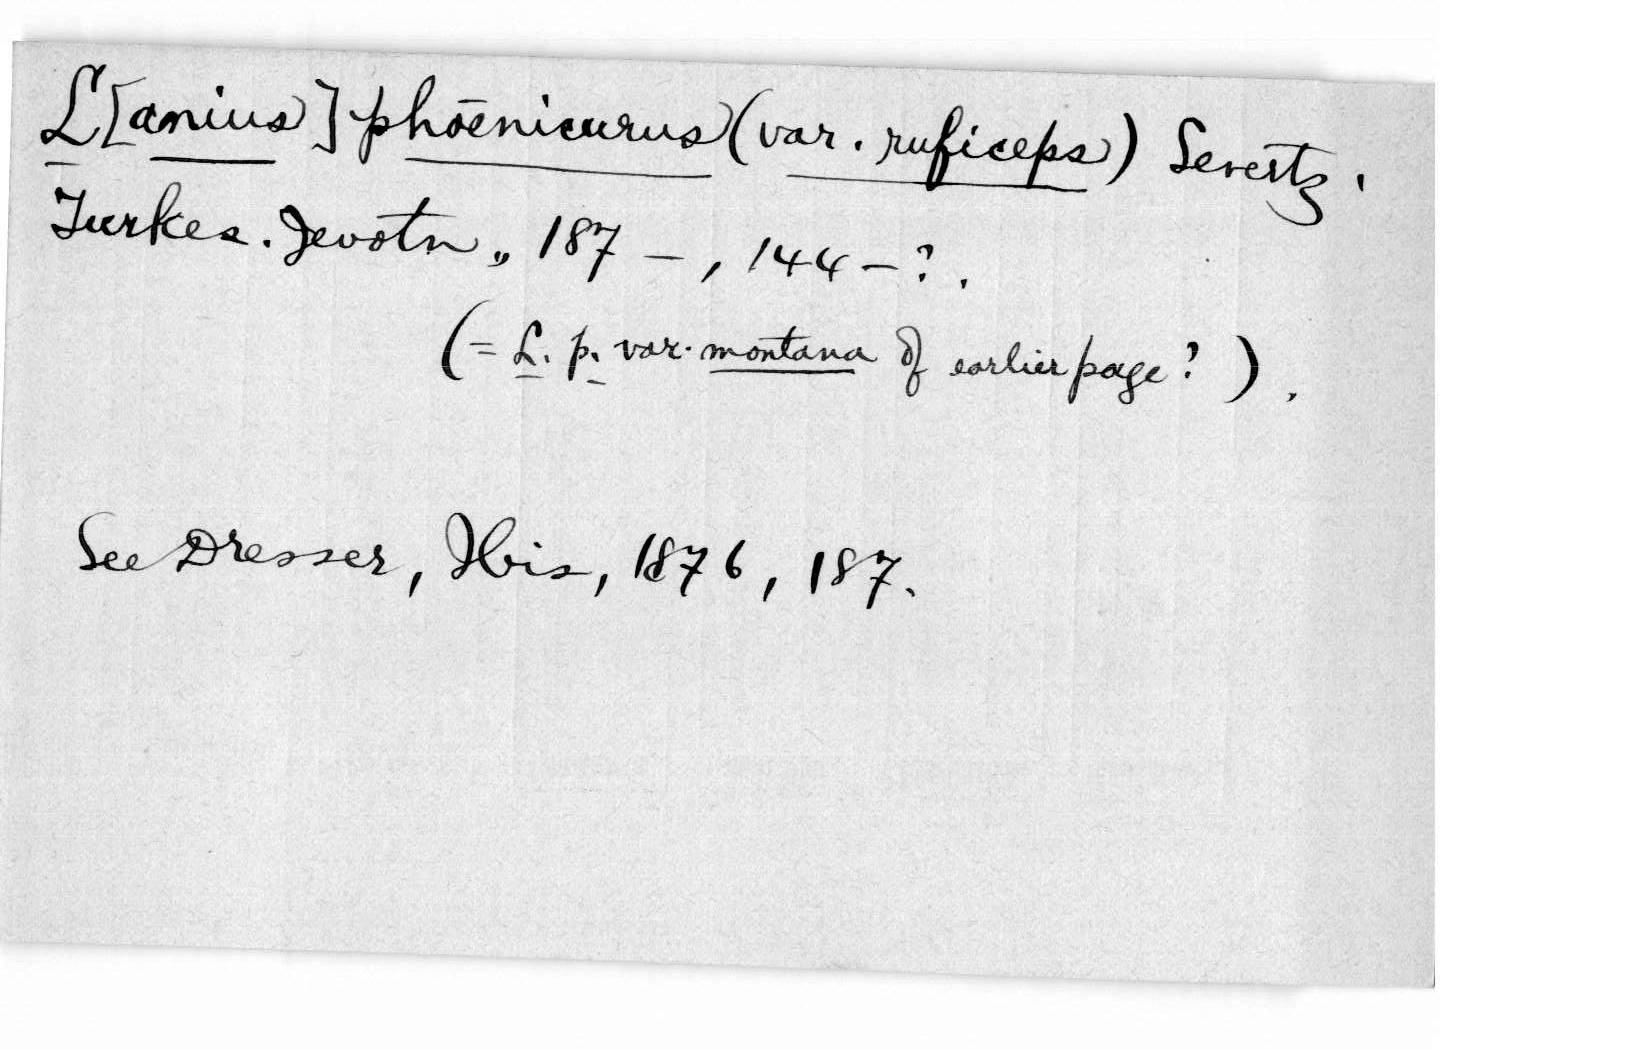 L[anius] phœnicurus (var. ruficeps) Severtz.
Turkes. Jevotn., 187–, 144–?.
(= L. p. var. montana of earlier page?).
See Dresser, Ibis, 1876, 187.